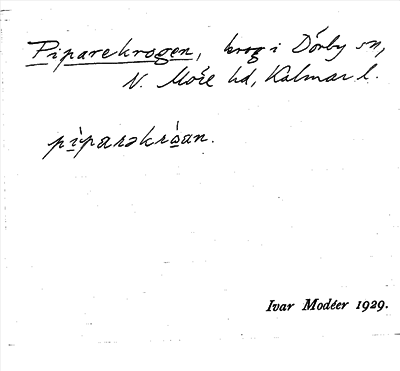 Piparekrogen, krog i Dörby sn,
N. Möre hd, Kalmar l.
pìparəkròan.
Ivar Modéer 1929.